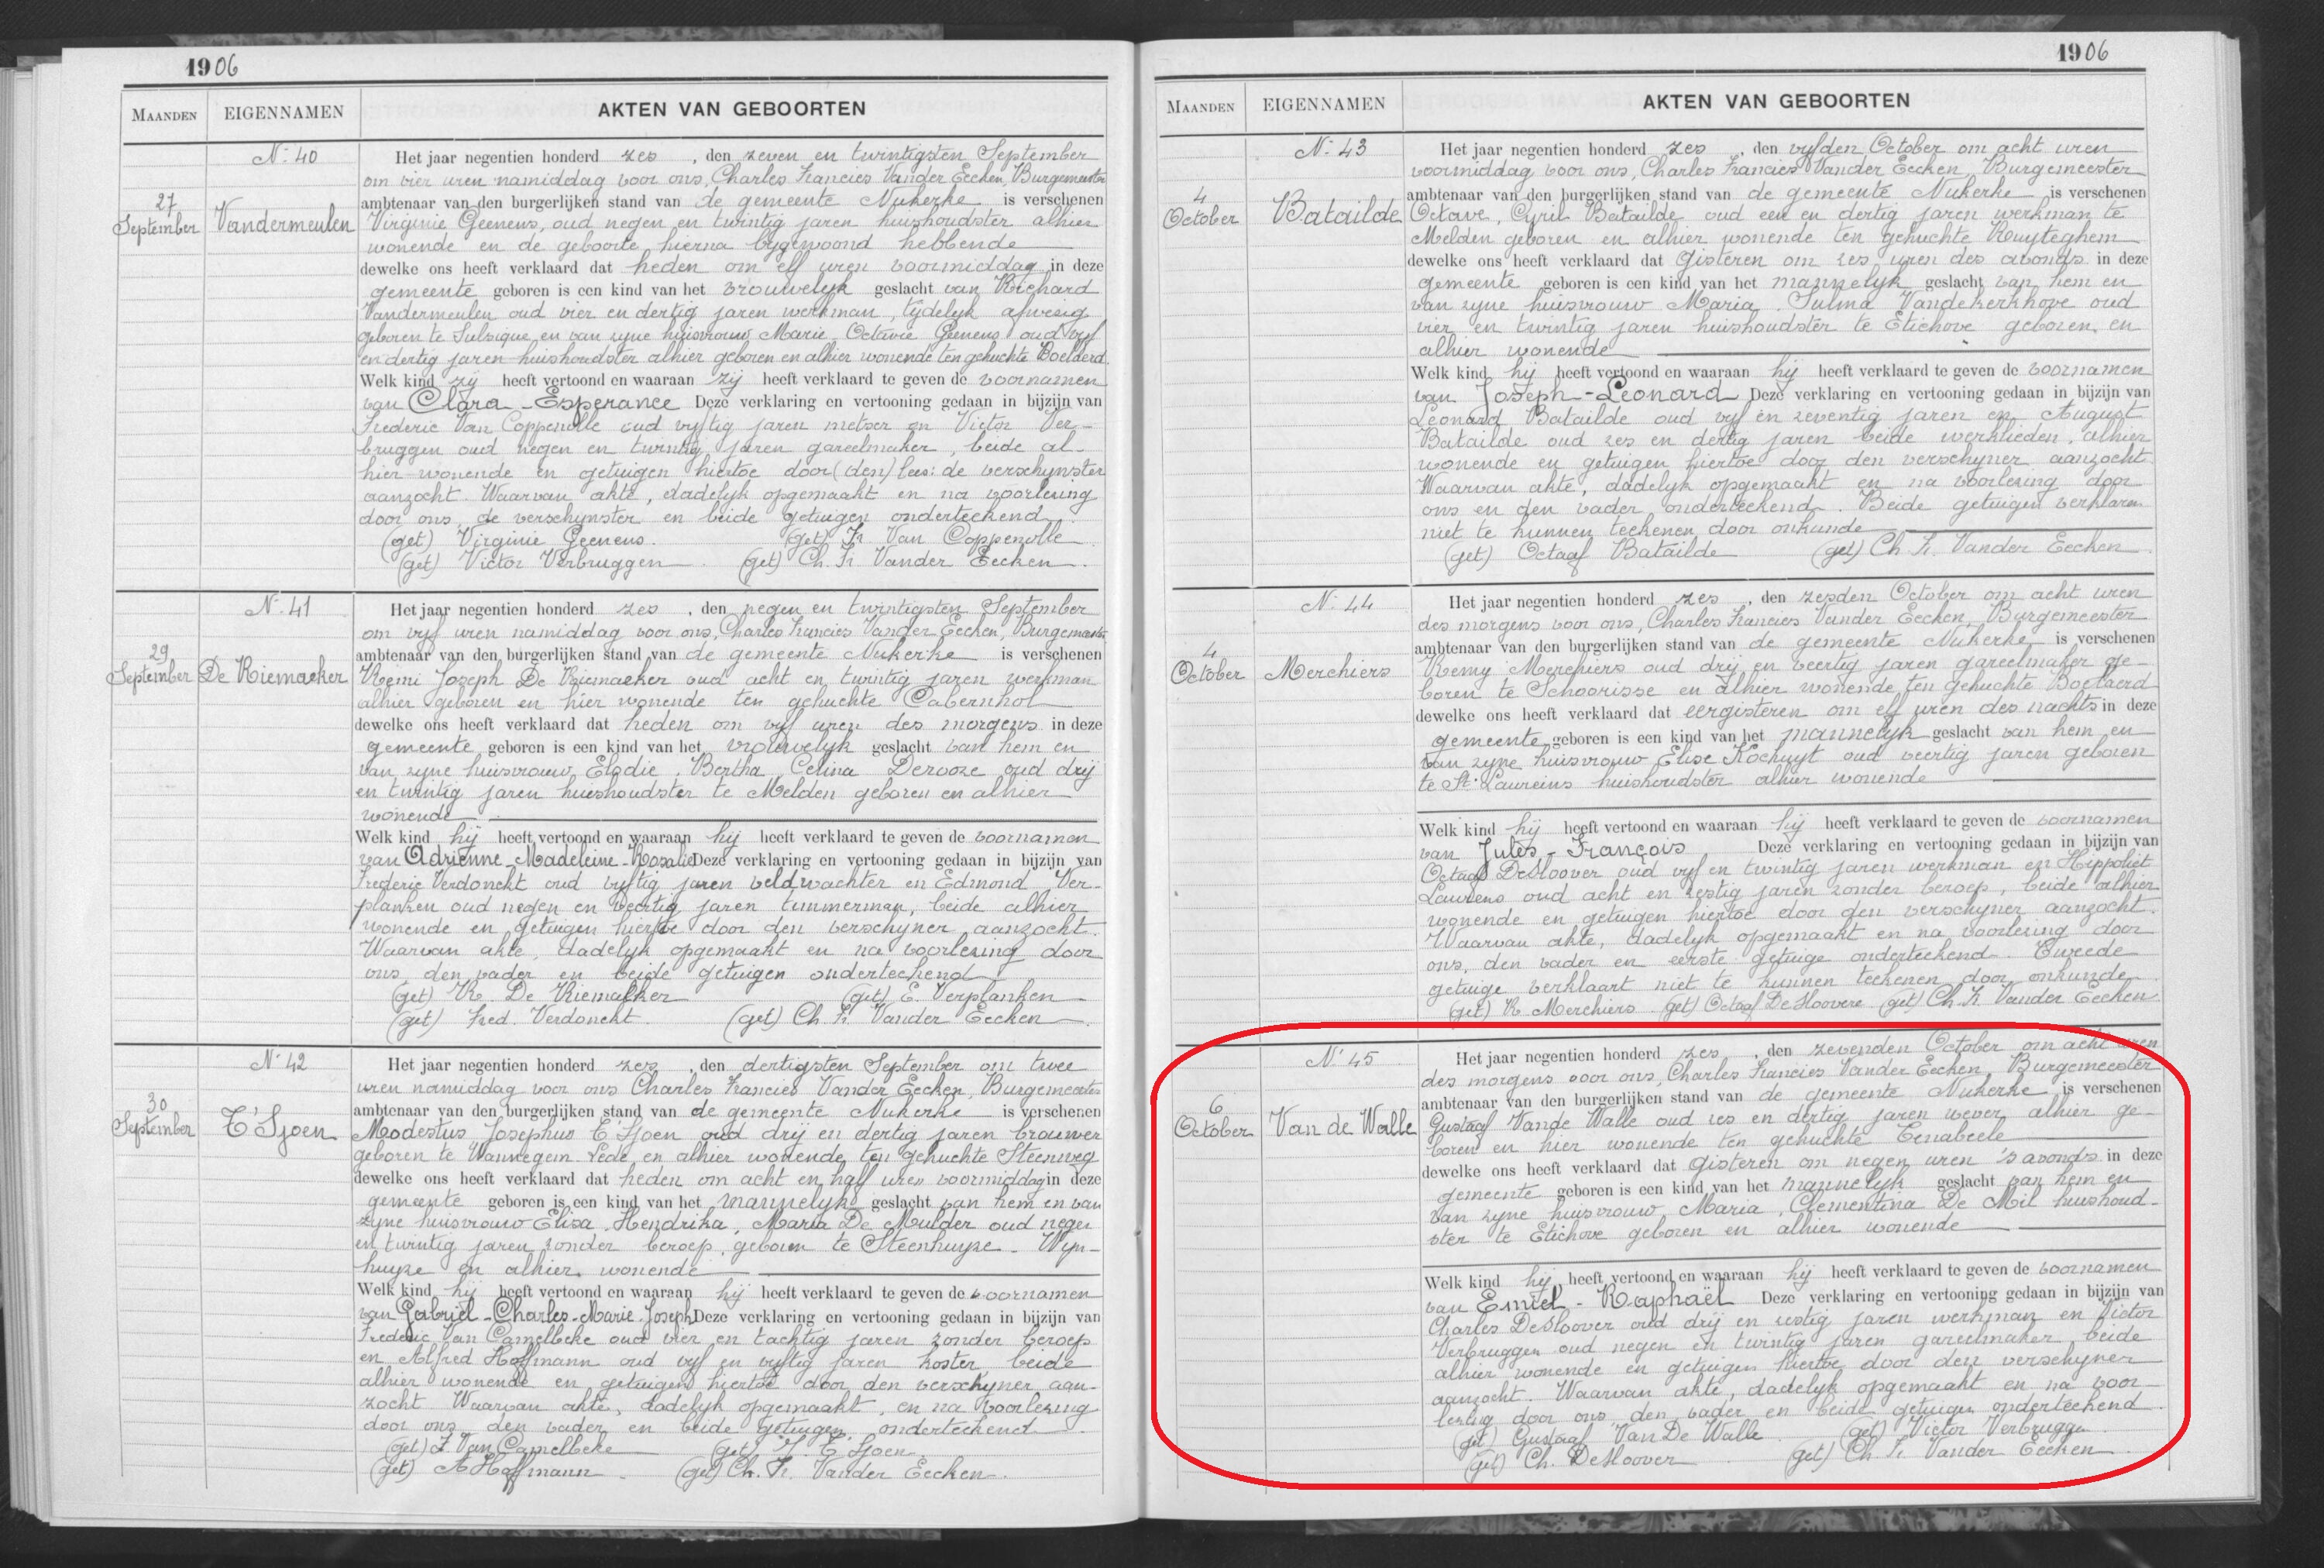 1906
MAANDEN EIGENNAMEN AKTEN VAN GEBOORTEN
N° 40
27 September
Vandermeulen
Het jaar negentien honderd zes, den zeven en twintigsten September
om vier uren namiddag voor ons, Charles Francies Vander Eecken, Burgemeester
ambtenaar van den burgerlijken stand van de gemeente Nukerke is verschenen
Virginie Geenens, oud negen en twintig jaren huishoudster alhier
wonende en de geboorte hierna bygewoond hebbende
dewelke ons heeft verklaard dat heden om elf uren voormiddag in deze
gemeente geboren is een kind van het vrouwelyk geslacht van Richard
Vandermeulen oud vier en dertig jaren werkman, tydelyk afwezig
geboren te Sulsique en van zyne huisvrouw Marie Octavie Geenens oud vyf
en dertig jaren huishoudster alhier geboren en alhier wonende ten gehuchte Boelaerd
Welk kind zij heeft vertoond en waaraan zij heeft verklaard te geven de voornamen
van Clara-Esperance Deze verklaring en vertooning gedaan in bijzijn van
Frederic Van Coppenolle oud vyftig jaren metser en Victor Ver-
bruggen oud negen en twintig jaren gareelmaker, beide al-
hier wonende en getuigen hiertoe door (den) lees: de verschynster
aanzocht. Waarvan akte, dadelyk opgemaakt en na voorlezing
door ons, de verschynster en beide getuigen onderteekend
(get) Virginie Geenens. (get) Fr. Van Coppenolle
(get) Victor Verbruggen (get) Ch. Fr. Vander Eecken.
N° 41
29 September
De Riemaeker
Het jaar negentien honderd zes, den negen en twintigsten September
om vyf uren namiddag voor ons, Charles Francies Vander Eecken, Burgemeester
ambtenaar van den burgerlijken stand van de gemeente Nukerke is verschenen
Remi Joseph De Riemaeker oud acht en twintig jaren werkman
alhier geboren en hier wonende ten gehuchte Cabernhol
dewelke ons heeft verklaard dat heden om vyf uren des morgens in deze
gemeente geboren is een kind van het vrouwelyk geslacht van hem en
van zyne huisvrouw Elodie, Bertha, Celina Derooze oud drij
en twintig jaren huishoudster te Melden geboren en alhier
wonende
Welk kind hij heeft vertoond en waaraan hij heeft verklaard te geven de voornamen
van Adrienne-Madeleine-Rosalie Deze verklaring en vertooning gedaan in bijzijn van
Frederic Verdonckt oud vyftig jaren veldwachter en Edmond Ver-
planken oud negen en veertig jaren timmerman, beide alhier
wonende en getuigen hiertoe door den verschyner aanzocht.
Waarvan akte, dadelyk opgemaakt en na voorlezing door
ons, den vader en beide getuigen onderteekend
(get) R. De Riemaeker (get) E. Verplanken
(get) Fred. Verdonckt. (get) Ch. Fr. Vander Eecken
N° 42
30 September
T'Sjoen
Het jaar negentien honderd zes, den dertigsten September om twee
uren namiddag voor ons Charles Francies Vander Eecken, Burgemeester
ambtenaar van den burgerlijken stand van de gemeente Nukerke is verschenen
Modestus Josephus T'Sjoen oud drij en dertig jaren brouwer
geboren te Wannegem-Lede en alhier wonende ten gehuchte Steenweg
dewelke ons heeft verklaard dat heden om acht en half uren voormiddag in deze
gemeente geboren is een kind van het mannelyk geslacht van hem en van
zyne huisvrouw Elisa, Hendrika, Maria De Mulder oud negen
en twintig jaren zonder beroep, geboren te Steenhuyze-Wyn-
huyze en alhier wonende
Welk kind hij heeft vertoond en waaraan hij heeft verklaard te geven de voornamen
van Gabriël-Charles-Marie-Joseph Deze verklaring en vertooning gedaan in bijzijn van
Frederic Van Camelbeke oud vier en tachtig jaren zonder beroep
en Alfred Hoffmann oud vyf en vyftig jaren koster, beide
alhier wonende en getuigen hiertoe door den verschyner aan-
zocht. Waarvan akte, dadelyk opgemaakt, en na voorlezing
door ons, den vader en beide getuigen, onderteekend
(get) F. Van Camelbeke (get) M. T'Sjoen
(get) A Hoffmann (get) Ch. Fr. Vander Eecken.
1906
MAANDEN EIGENNAMEN AKTEN VAN GEBOORTEN
N° 43
4 October
Batailde
Het jaar negentien honderd zes, den vyfden October om acht uren
voormiddag voor ons, Charles Francies Vander Eecken Burgemeester
ambtenaar van den burgerlijken stand van de gemeente Nukerke is verschenen
Octave, Cyril Batailde oud een en dertig jaren werkman te
Melden geboren en alhier wonende ten gehuchte Ruyteghem
dewelke ons heeft verklaard dat gisteren om zes uren des avonds in deze
gemeente geboren is een kind van het mannelyk geslacht van hem en
van zyne huisvrouw Maria, Zulma Vandekerkhove oud
vier en twintig jaren huishoudster te Etichove geboren en
alhier wonende
Welk kind hij heeft vertoond en waaraan hij heeft verklaard te geven de voornamen
van Joseph-Leonard Deze verklaring en vertooning gedaan in bijzijn van
Leonard Batailde oud vyf en zeventig jaren en August
Batailde oud zes en dertig jaren beide werklieden, alhier
wonende en getuigen hiertoe door den verschyner aanzocht
Waarvan akte, dadelyk opgemaakt en na voorlezing door
ons en den vader onderteekend. Beide getuigen verklaren
niet te kunnen teekenen door onkunde
(get) Octaaf Batailde (get) Ch Fr. Vander Eecken
N° 44
4 October
Merchiers
Het jaar negentien honderd zes, den zesden October om acht uren
des morgens voor ons, Charles Francies Vander Eecken, Burgemeester
ambtenaar van den burgerlijken stand van de gemeente Nukerke is verschenen
Remy Merchiers oud drij en veertig jaren gareelmaker ge-
boren te Schoorisse en alhier wonende ten gehuchte Boelaerd
dewelke ons heeft verklaard dat eergisteren om elf uren des nachts in deze
gemeente geboren is een kind van het mannelyk geslacht van hem en
van zyne huisvrouw Elise Kochuyt oud veertig jaren geboren
te St. Laureins huishoudster alhier wonende
Welk kind hij heeft vertoond en waaraan hij heeft verklaard te geven de voornamen
van Jules-François. Deze verklaring en vertooning gedaan in bijzijn van
Octaaf DeSloover oud vyf en twintig jaren werkman en Hippoliet
Laurens oud acht en zestig jaren zonder beroep, beide alhier
wonende en getuigen hiertoe door den verschyner aanzocht.
Waarvan akte, dadelyk opgemaakt en na voorlezing door
ons, den vader en eerste getuige onderteekend. Tweede
getuige verklaart niet te kunnen teekenen door onkunde
(get) R Merchiers (get) Octaaf DeSloovere (get) Ch. Fr. Vander Eecken
N° 45
6 October
Van de Walle
Het jaar negentien honderd zes, den zevenden October om acht uren
des morgens voor ons, Charles Francies Vander Eecken, Burgemeester
ambtenaar van den burgerlijken stand van de gemeente Nukerke is verschenen
Gustaaf Vande Walle oud zes en dertig jaren wever alhier ge-
boren en hier wonende ten gehuchte Tenabeele
dewelke ons heeft verklaard dat gisteren om negen uren 's avonds in deze
gemeente geboren is een kind van het mannelyk geslacht van hem en
van zyne huisvrouw Maria, Clementina De Mil huishoud-
ster te Etichove geboren en alhier wonende
Welk kind hij heeft vertoond en waaraan hij heeft verklaard te geven de voornamen
van Emiel-Raphaël Deze verklaring en vertooning gedaan in bijzijn van
Charles DeSloover oud drij en zestig jaren werkman en Victor
Verbruggen oud negen en twintig jaren gareelmaker, beide
alhier wonende en getuigen hiertoe door den verschyner
aanzocht. Waarvan akte, dadelyk opgemaakt en na voor-
lezing door ons, den vader en beide getuigen onderteekend.
(get) Gustaaf Van De Walle (get) Victor Verbruggen
(get) Ch. DeSloover (get) Ch. Fr. Vander Eecken